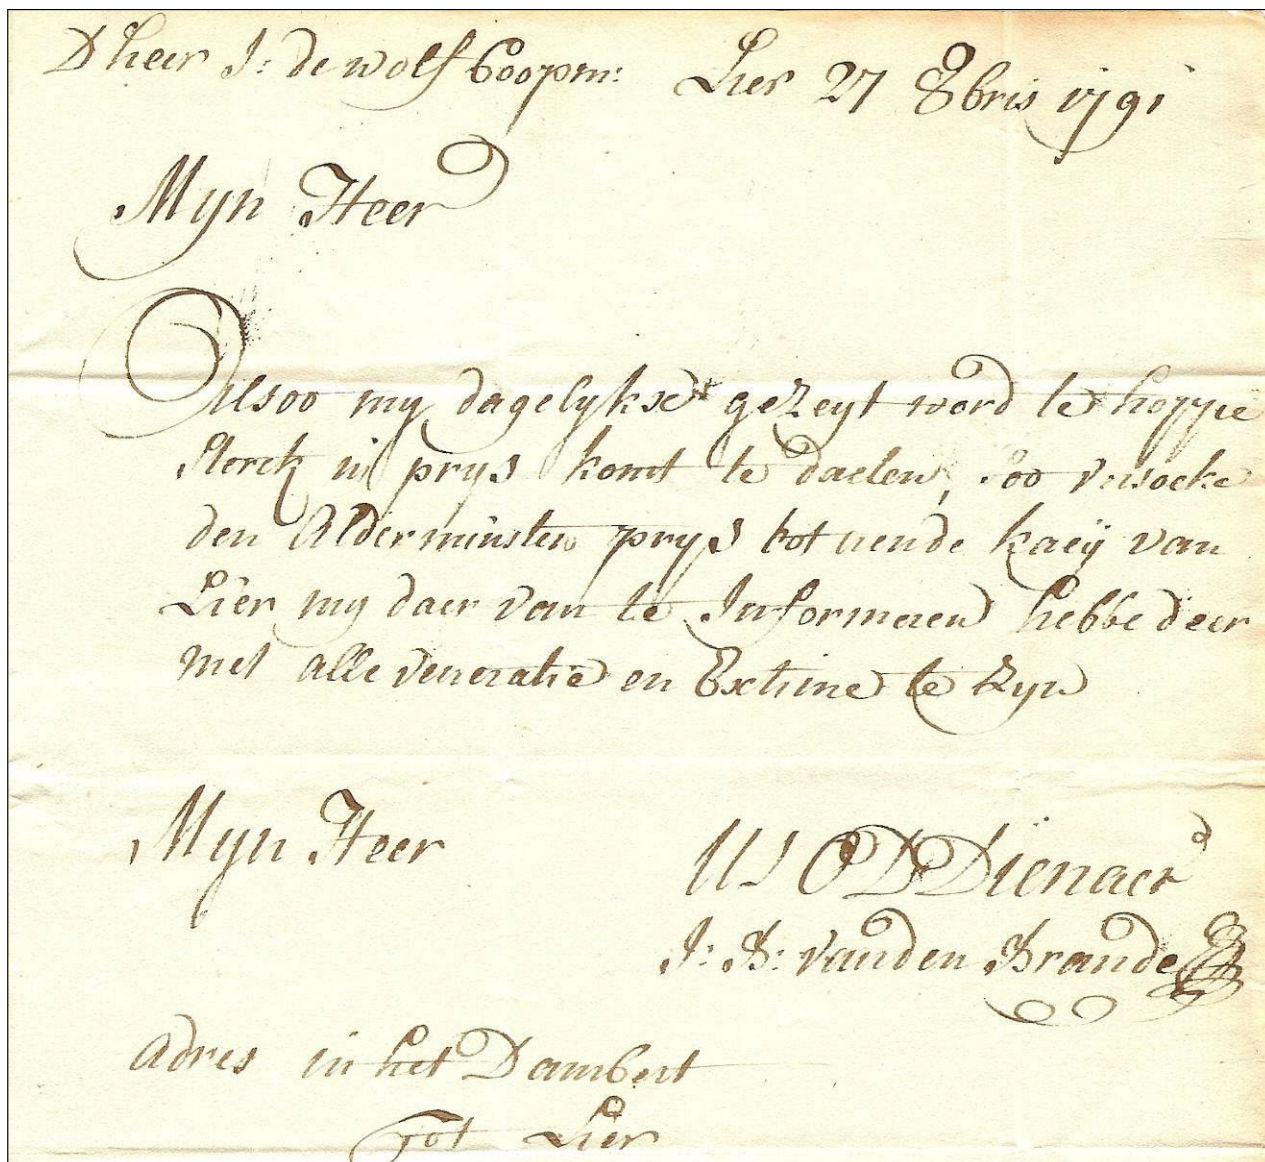 D heer J: de wolf Coopm: Lier 27 8bris 1791
Myn Heer
Alsoo my dagelykx gezeyt word te hoppe
sterck in prys komt te daelen, soo versoeke
den Alderminsten prys tot aende kaeÿ van
Lier my daer van te Informeren hebbe d'eer
met alle veneratie en Extime te zyn
Myn Heer
US O D Dïenaer
J: B: vanden Brande
Adres in het Dambert
Tot Lier